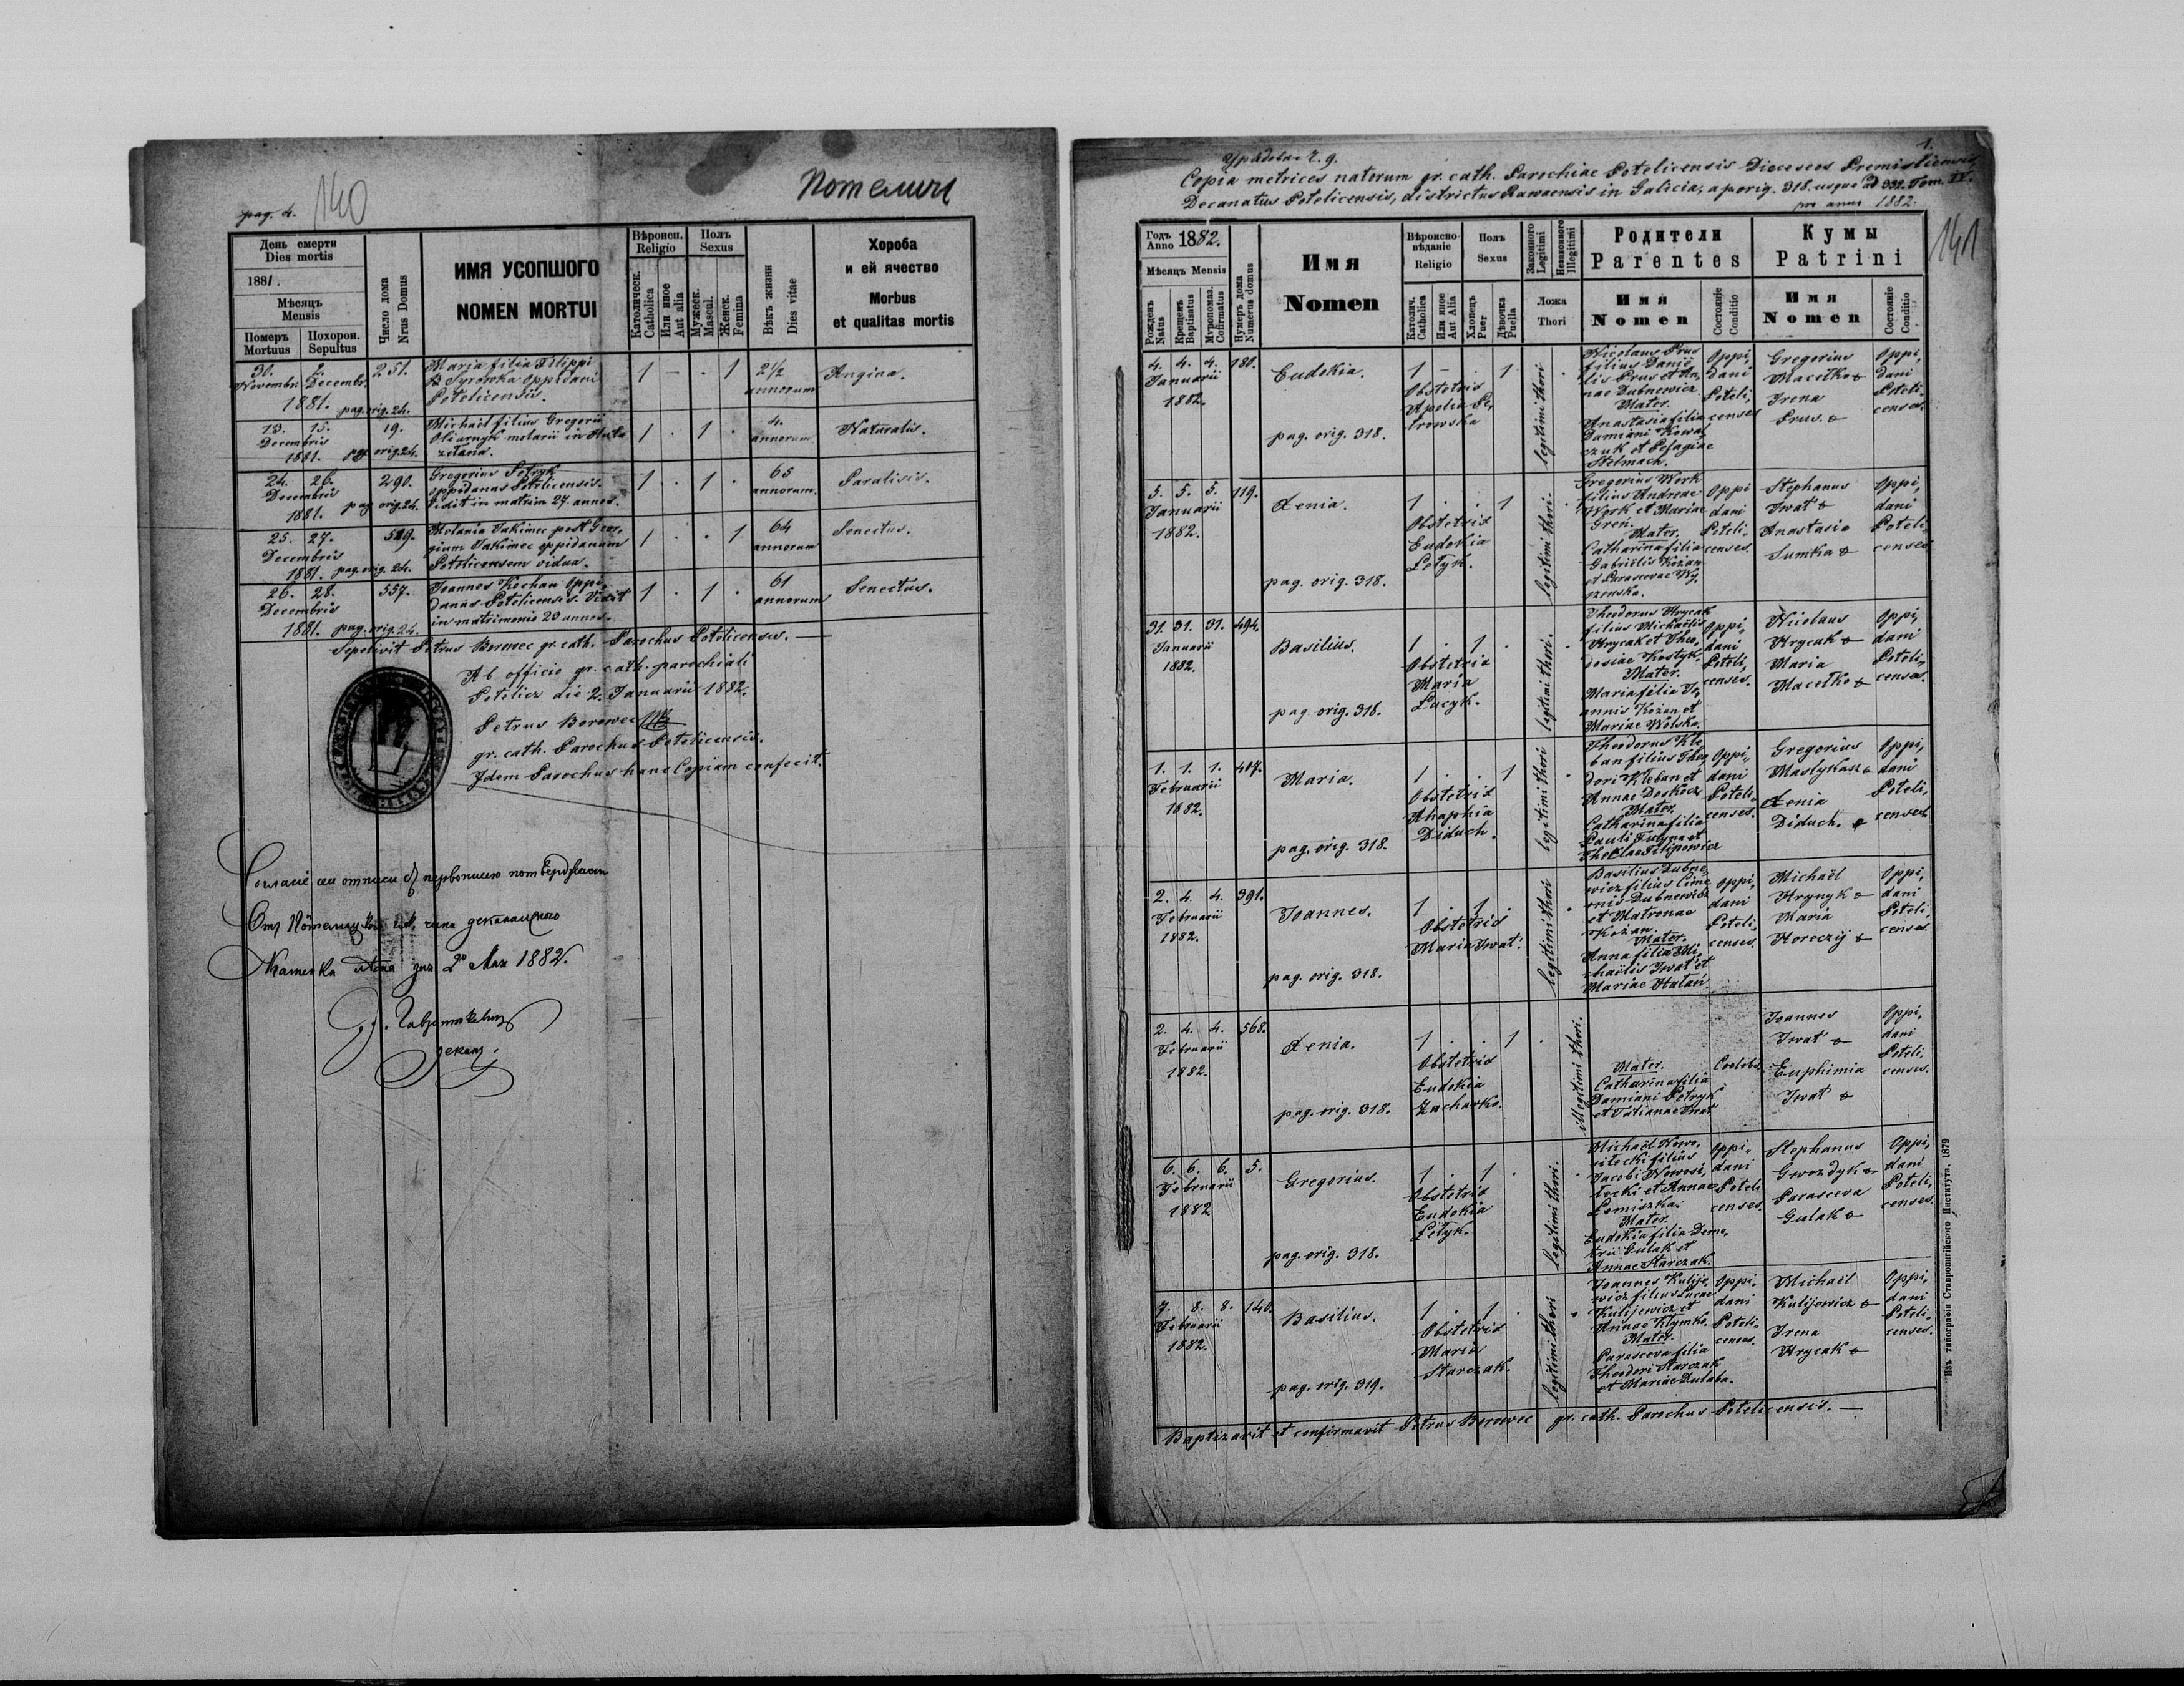 pag. 4.
140
Потеличи
День смерти
Dies mortis
1881.
Мѣсяцъ
Mensis
Померъ
Mortuus
Похорон.
Sepultus
Число дома
Nrus Domus
ИМЯ УСОПШОГО
NOMEN MORTUI
Вѣроисп.
Religio
Католическ.
Catholica
Или иное
Aut alia
Полъ
Sexus
Мужеск.
Mascul.
Женск.
Femina
Вѣкъ жизни
Dies vitae
Хороба
и ей ячество
Morbus
et qualitas mortis
30. 2. 251. Maria filia Filippi 1 - . 1 2½ Angina.
Novembr. Decembr. Syrowka oppidani annorum
1881. pag. orig. 24. Potelicensis.
13. 15. 19. Michaël filius Gregorii 1 . 1 . 4. Naturalis.
Decembris Oliarnyk molarii in Huta annorum
1881. pag. orig. 24. zelana.
24. 26. 290. Gregorius Petryk 1 . 1 . 65 Paralisis.
Decembris oppidanus Potelicensis. annorum.
1881. pag. orig. 24. Vixit in matrim 27. annos.
25. 27. 519. Melania Jakimec post Geor, 1 . . 1 64 Senectus.
Decembris gium Jakimec oppidanum annorum
1881. pag. orig. 24. Potelicensem vidua.
26. 28. 557. Joannes Kochan Oppi, 1 . 1 . 61 Senectus.
Decembris danus Potelicensis Vixit annorum
1881. pag. orig. 24. in matrimonio 20 annos.
Sepelivit Petrus Borowec gr. cath. Parochus Potelicensis.
Ab officio gr. cath. parochiali
Potelicz die 2. Januarii 1882.
Petrus Borowec
gr. cath. Parochus Potelicensis.
Idem Parochus hanc Copiam confecit.
Согласіе сеи отписи съ первописею потверджаеся
Отъ Потелицкого чина деканального
Каменка дня 2º Мая 1882.
деканъ.
1.
Copia metrices natorum gr. cath. Parochiae Potelicensis Dioeceseos Premisliensis,
Decanatus Potelicensis, districtus Rawaensis in Galicia, a porig. 318. usque ad 332. Tom. IV.
pro anno 1882.
141
Годъ
Anno 1882.
Мѣсяцъ Mensis
Рожденъ
Natus
Крещенъ
Baptisatus
Мѵропомаз.
Cofirmatus
Нумеръ дома
Numerus domus
Имя
Nomen
Вѣроиспо-
вѣданіе
Religio
Католич.
Catholica
Или иное
Aut Alia
Полъ
Sexus
Хлопецъ
Puer
Дѣвочка
Puella
Законного
Legitimi
Незаконного
Illegitimi
Ложа
Thori
Родители
Parentes
Имя
Nomen
Состояніе
Conditio
Кумы
Patrini
Имя
Nomen
Состояніе
Conditio
4. 4. 4. 180.
Januarii
1882.
Eudokia.
pag. orig. 318.
1 - . 1
Obstetrix
Apolia Pe,
trowska
legitimi thori
Nicolaus Prus
filius Danie
lis Prus et An,
nae Dubnewicz
Mater.
Anastasia filia
Damiani Kowal,
czuk et Pelagiae
Stelmach.
Oppi,
dani
Poteli,
censes
Gregorius
Macełko &
Irena
Prus. &
Oppi,
dani
Poteli,
censes.
5. 5. 5. 119.
Januarii
1882.
Xenia.
pag. orig. 318.
1 . . 1
Obstetrix
Eudokia
Łotyk.
legitimi thori.
Gregorius Work
filius Andreae
Work et Mariae
Greń.
Mater.
Catharina filia
Gabriëlis Kożan
et Parascevae Wy,
szenska.
Oppi
dani
Poteli-
censes.
Stephanus
Iwat &
Anastasia
Sumka &
Oppi,
dani
Poteli,
censes
31. 31. 31. 494.
Januarii
1882.
Basilius.
pag. orig. 318.
1 . 1 .
Obstetrix
Maria
Łucyk.
legitimi thori.
Theodorus Hrycak
filius Michaëlis
Hrycak et Theo,
dosiae Kostyk.
Mater.
Maria filia Jo,
annis Kożan et
Mariae Wolsko.
Oppi,
dani
Poteli,
censes.
Nicolaus
Hrycak &
Maria
Macełko &
Oppi,
dani
Poteli,
censes.
1. 1. 1. 417.
Februarii
1882.
Maria.
pag. orig. 318.
1 . . 1
Obstetrix
Ahaphia
Diduch.
legitimi thori
Theodorus Kle,
ban filius Theo,
dori Kleban et
Annae Doskocz
Mater.
Catharina filia
Pauli Futyna et
Theclae Filipowicz
Oppi,
dani
Poteli,
censes.
Gregorius
Mastykasz &
Xenia
Diduch. &
Oppi,
dani
Poteli,
censes
2. 4. 4. 391.
Februarii
1882.
Joannes.
pag. orig. 318.
1 . 1 .
Obstetrix
Maria Iwat.
legitimi thori
Basilius Dubne,
wicz filius Sime
onis Dubnewicz
et Matronae
Kożan.
Mater.
Anna filia Mi,
chaëlis Iwat et
Mariae Hałań
Oppi,
dani
Poteli,
censes.
Michaël
Hrynyk &
Maria
Horeczij &
Oppi,
dani
Poteli,
censes
2. 4. 4. 568.
Februarii
1882.
Xenia.
pag. orig. 318.
1 . . 1
Obstetrix
Eudokia
Zacharko.
illegitimi thori.
Mater.
Catharina filia
Damiani Petryk
et Tatianae Iwat
Coelebs.
Joannes
Iwat &
Euphimia
Iwat &
Oppi,
dani
Poteli,
censes.
6. 6. 6. 5.
Februarii
1882
Gregorius.
pag. orig. 318.
1 . 1 .
Obstetrix
Eudokia
Łotyk.
legitimi thori.
Michaël Nowo,
silecki filius
Jacobi Nowosi,
lecki et Annae
Lomiszka.
Mater.
Eudokia filia Deme,
trii Gulak et
Annae Starczak.
Oppi,
dani
Poteli
censes.
Stephanus
Gwozdyk &
Parasceva
Gulak &
Oppi,
dani
Poteli,
censes.
7. 8. 8. 140.
Februarii
1882.
Basilius.
pag. orig. 319.
1 . 1 .
Obstetrix
Maria
Starczak.
legitimi thori
Joannes Kulije,
wicz filius Lucae
Kulijewicz et
Annae Klymko.
Mater.
Parasceva filia
Theodori Starczak
et Mariae Dulaba.
Oppi,
dani
Poteli,
censes.
Michaël
Kulijowicz &
Irena
Hrycak &
Oppi,
dani
Poteli,
censes.
Baptizavit et confirmavit Petrus Borowec gr. cath. Parochus Potelicensis.
Изъ типографіи Ставропигійского Института. 1879